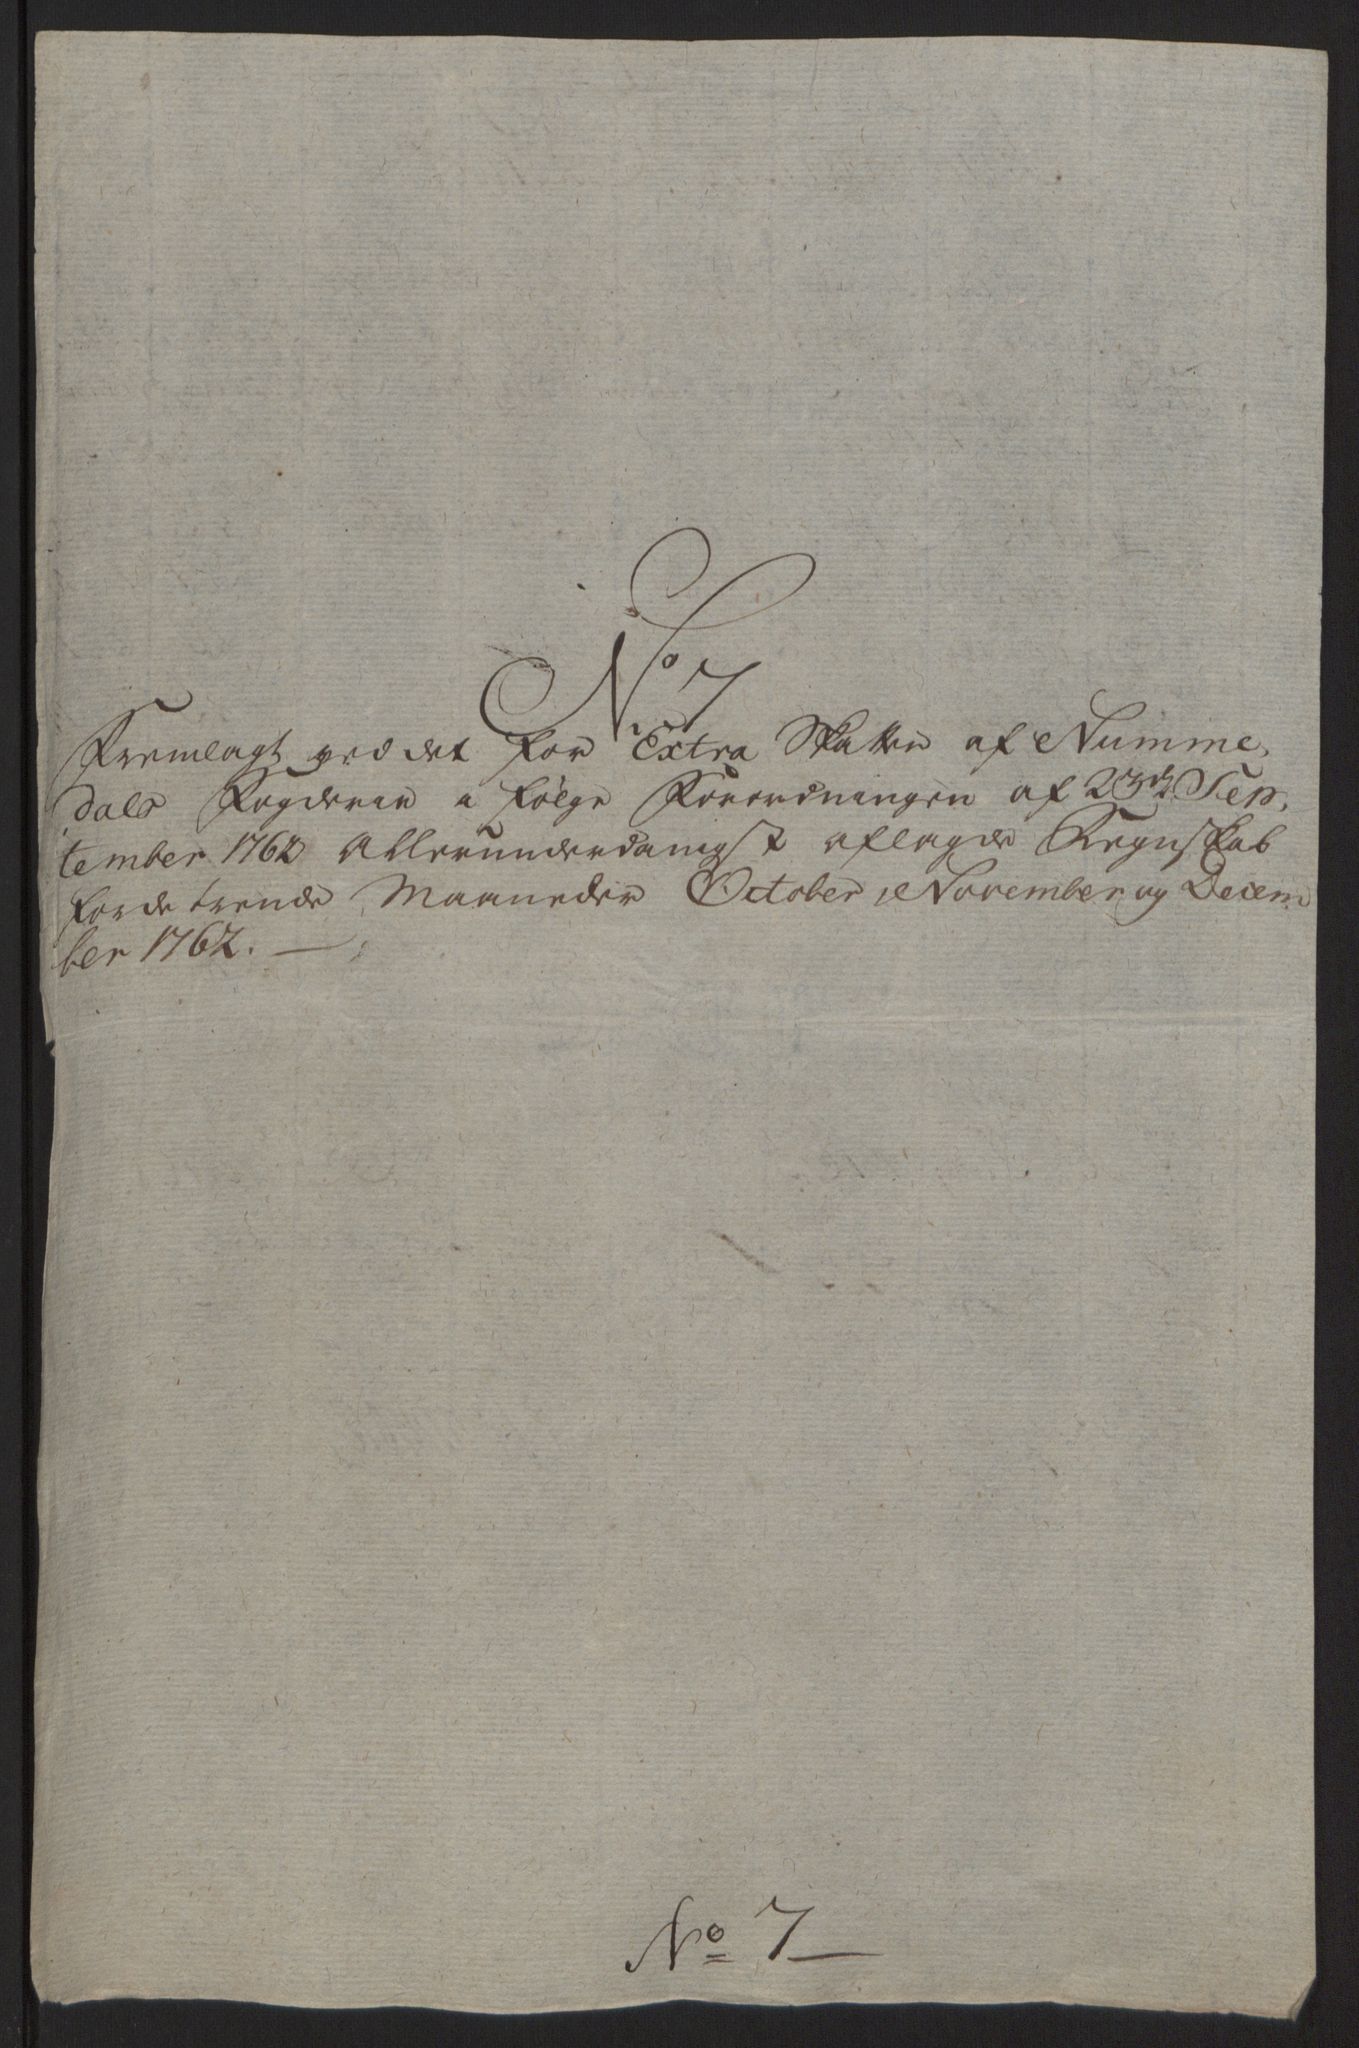 No 7
Fremlagt ved det for Extra Skatten af Numme,
dals Fogderie i følge Forordningen af 23de Sep,
tember 1762 Allerunderdanigst aflagde Regnskab
for de trende Maaneder October, November og Decem
ber 1762. —
No 7